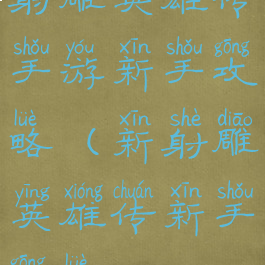 射雕英雄传
shǒu yóu xīn shǒu gōng
手游新手攻
lüè xīn shè diāo
略（新射雕
yīng xióng chuán xīn shǒu
英雄传新手
gōng lüè